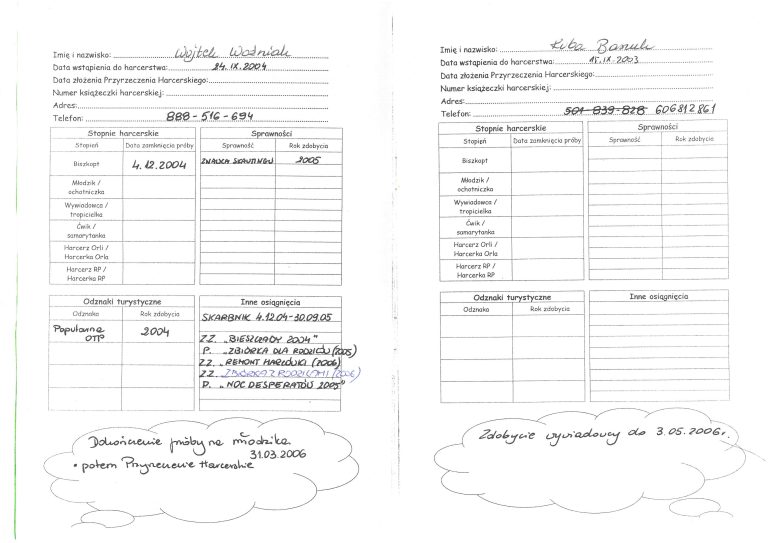 Imię i nazwisko: Wojtek Woźniak
Data wstąpienia do harcerstwa: 24.IX.2004
Data złożenia Przyrzeczenia Harcerskiego:
Numer książeczki harcerskiej:
Adres:
Telefon: 888-516-694
Stopnie harcerskie
Stopień Data zamknięcia próby
Biszkopt 4.12.2004
Młodzik /
ochotniczka
Wywiadowca /
tropicielka
Ćwik /
samarytanka
Harcerz Orli /
Harcerka Orla
Harcerz RP /
Harcerka RP
Sprawności
Sprawność Rok zdobycia
ZNAWCA SKAUTINGU 2005
Odznaki turystyczne
Odznaka Rok zdobycia
Popularna 2004
OTP
Inne osiągnięcia
SKARBNIK 4.12.04-30.09.05
Z.Z. „BIESZCZADY 2004"
P. „ZBIÓRKA DLA RODZICÓW (2005)
Z.Z. „REMONT HARCÓWKI (2006)
Z.Z. ZBIÓRKA Z RODZICAMI (2006)
P. „NOC DESPERATÓW 2005"
Dokończenie próby na młodzika
31.03.2006
• potem Przyrzeczenie Harcerskie
Imię i nazwisko: Kuba
Data wstąpienia do harcerstwa: 15.IX.2003
Data złożenia Przyrzeczenia Harcerskiego:
Numer książeczki harcerskiej:
Adres:
Telefon: 501-839-828 606812861
Stopnie harcerskie
Stopień Data zamknięcia próby
Biszkopt
Młodzik /
ochotniczka
Wywiadowca /
tropicielka
Ćwik /
samarytanka
Harcerz Orli /
Harcerka Orla
Harcerz RP /
Harcerka RP
Sprawności
Sprawność Rok zdobycia
Odznaki turystyczne
Odznaka Rok zdobycia
Inne osiągnięcia
Zdobycie wywiadowcy do 3.05.2006r.